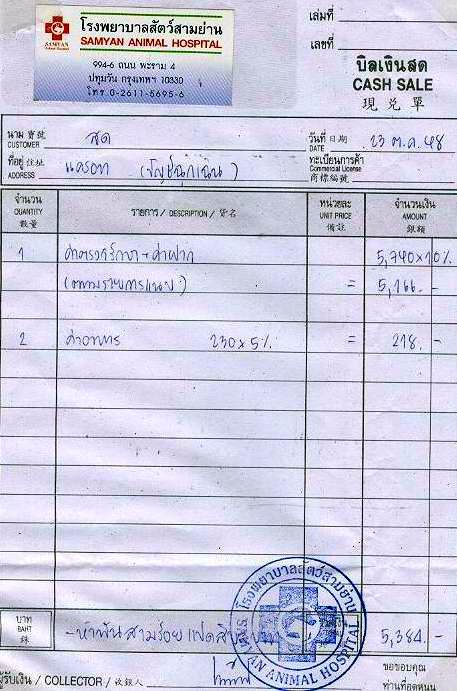 โรงพยาบาลสัตว์สามย่าน
SAMYAN ANIMAL HOSPITAL
SAMYAN
994-6 ถนน พระราม 4
ปทุมวัน กรุงเทพฯ 10330
โทร 0-2611-5695-6
เล่มที่
เลขที่
บิลเงินสด
CASH SALE
現兌單
นาม 寶號 สด
CUSTOMER
วันที่ 日期 23 ต.ค. 48
DATE
ที่อยู่ 住址
ADDRESS
ทะเบียนการค้า
Commercial License
商標編號
จำนวน
QUANTITY
數量
รายการ / DESCRIPTION / 貨名
หน่วยละ
UNIT PRICE
備註
จำนวนเงิน
AMOUNT
銀額
1 ค่าตรวจรักษา + ค่าฝาก 5,740x10%
(ตามรายการแนบ) = 5,166. -
2 ค่าอาหาร 230x5% = 218. -
บาท
BAHT
銖
- ห้าพันสามร้อยแปดสิบ 5,384. -
ร.พ.ส. โรงพยาบาลสัตว์สามย่าน
AN ANIMAL HOSPITAL
ผู้รับเงิน / COLLECTOR / 收銀人
ขอขอบคุณ
ท่านที่อุดหนุน